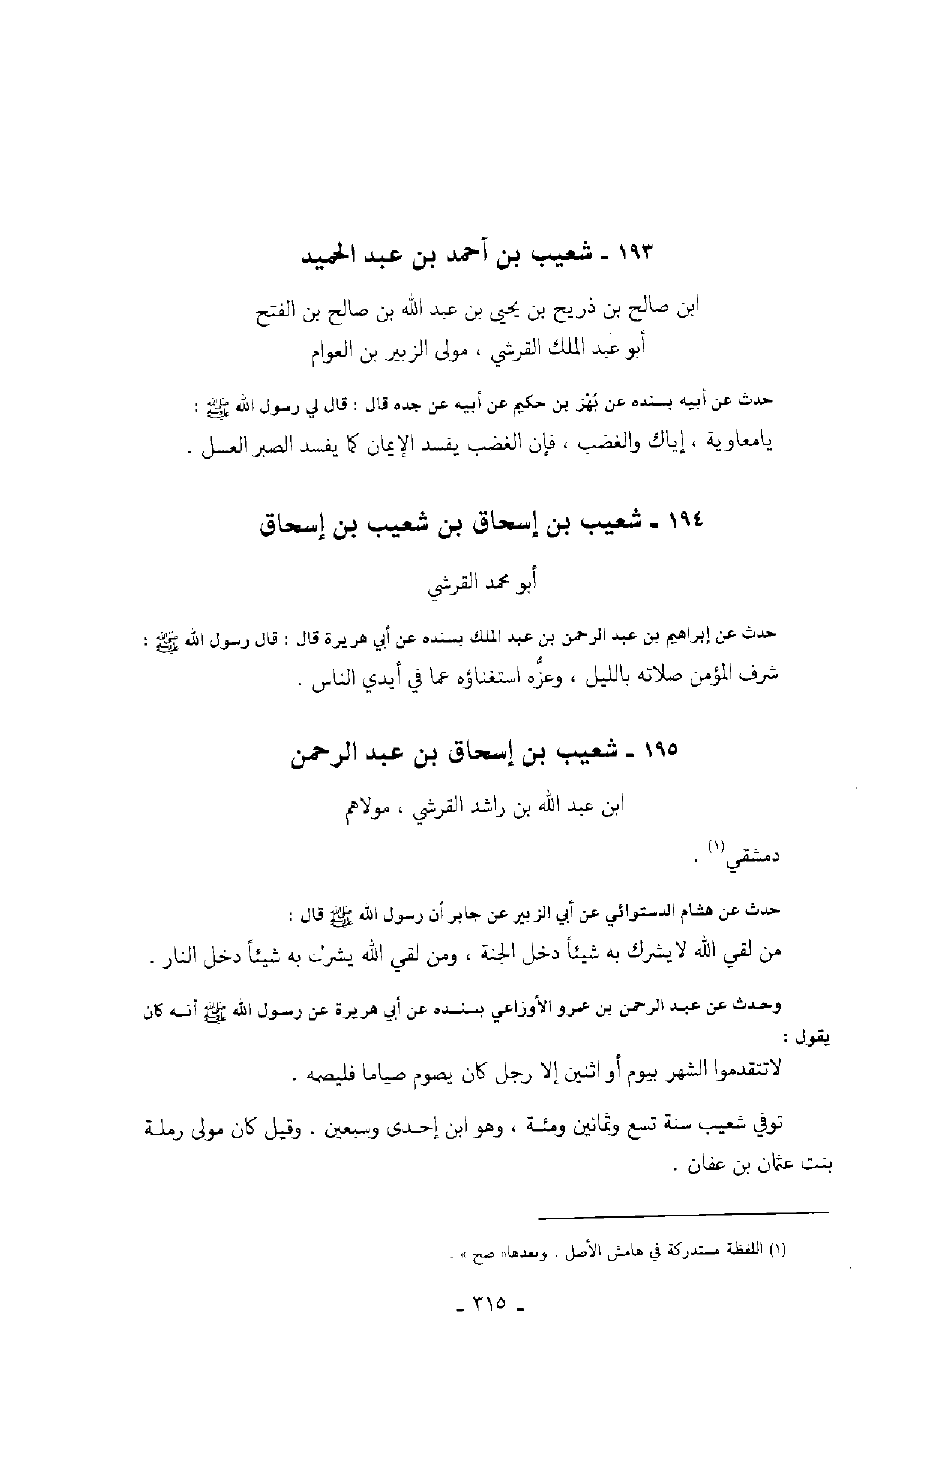 ١٩٣ ـ شعيب بن أحمد بن عبد الحميد
ابن صالح بن ذريح بن يحيى بن عبد الله بن صالح بن الفتح
أبو عبد الملك القرشي ، مولى الزبير بن العوام
حدث عن أبيه بسنده عن بَهْز بن حكيم عن أبيه عن جده قال : قال لي رسول الله ﷺ :
يامعاوية ، إياك والغضب ، فإن الغضب يفسد الإيمان كما يفسد الصبر العسل .
١٩٤ ـ شعيب بن إسحاق بن شعيب بن إسحاق
أبو محمد القرشي
حدث عن إبراهيم بن عبد الرحمن بن عبد الملك بسنده عن أبي هريرة قال : قال رسول الله ﷺ :
شرف المؤمن صلاته بالليل ، وعزُّه استغناؤه عما في أيدي الناس .
١٩٥ ـ شعيب بن إسحاق بن عبد الرحمن
ابن عبد الله بن راشد القرشي ، مولاهم
دمشقي(١) .
حدث عن هشام الدستوائي عن أبي الزبير عن جابر أن رسول الله ﷺ قال :
من لقي الله لايشرك به شيئاً دخل الجنة ، ومن لقي الله يشرك به شيئاً دخل النار .
وحدث عن عبد الرحمن بن عمرو الأوزاعي بسنده عن أبي هريرة عن رسول الله ﷺ أنه كان
يقول :
لاتتقدموا الشهر بيوم أو اثنين إلا رجل كان يصوم صياما فليصمه .
توفي شعيب سنة تسع وثمانين ومئة ، وهو ابن إحدى وسبعين . وقيل كان مولى رملة
بنت عثمان بن عفان .
(١) اللفظة مستدركة في هامش الأصل . وبعدها « صح » .
ـ ٣١٥ ـ